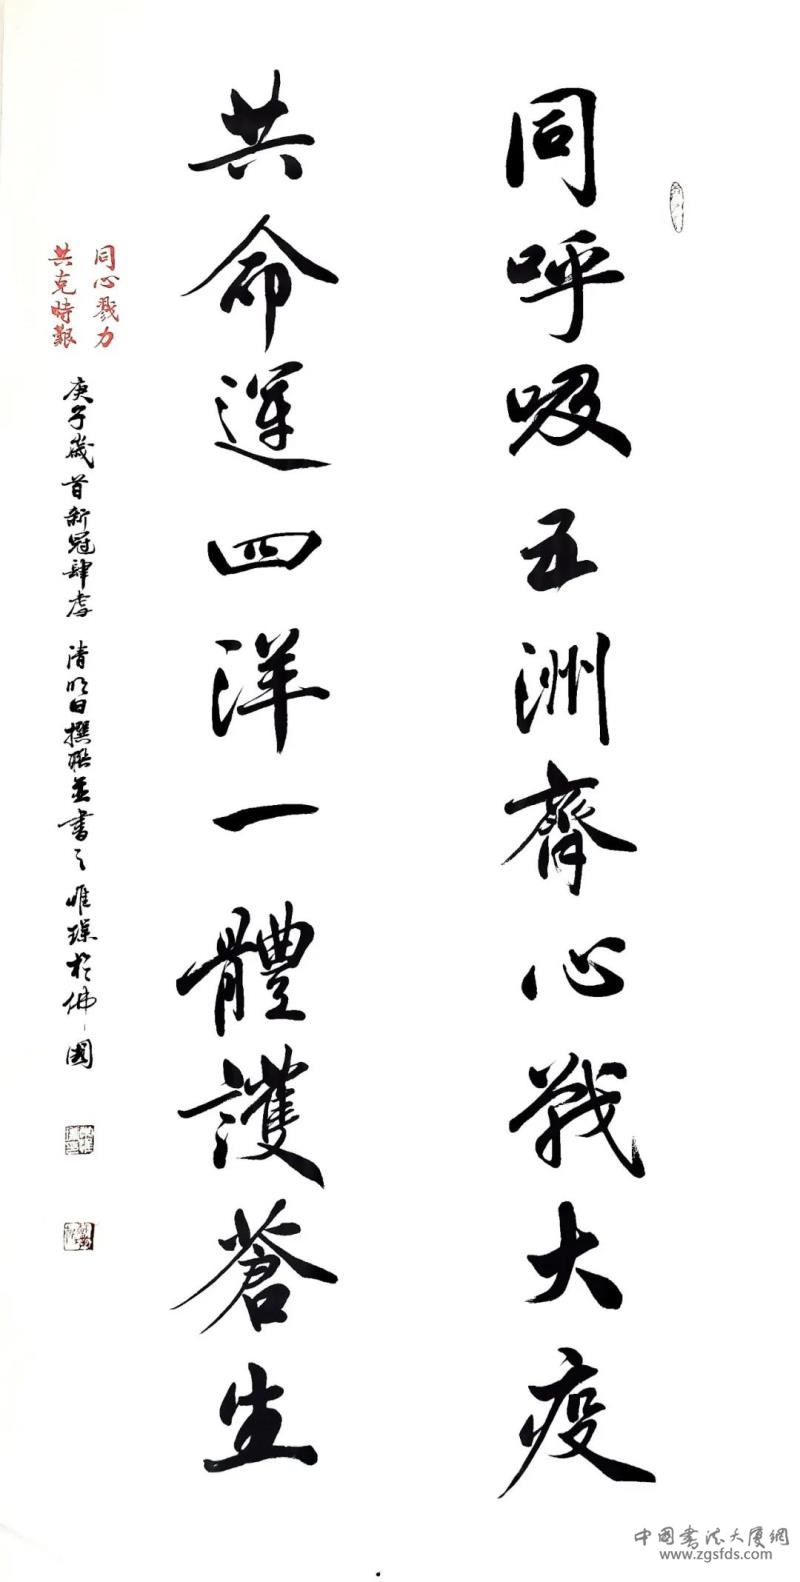 同呼吸五洲齊心戰大疫
共命運四洋一體護蒼生
同心戮力
共克時艱
庚子歲首新冠肆虐 清明日撰联並書之 惟璞於佛國
中國書法大廈網
www.zgsfds.com